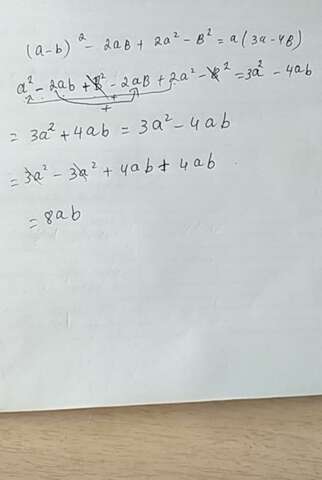 (a-b)² - 2aB + 2a² - B² = a(3a-4B)
a² - 2ab + b² - 2aB + 2a² - b² = 3a² - 4ab
+
= 3a² + 4ab = 3a² - 4ab
= 3a² - 3a² + 4ab + 4ab
= 8ab